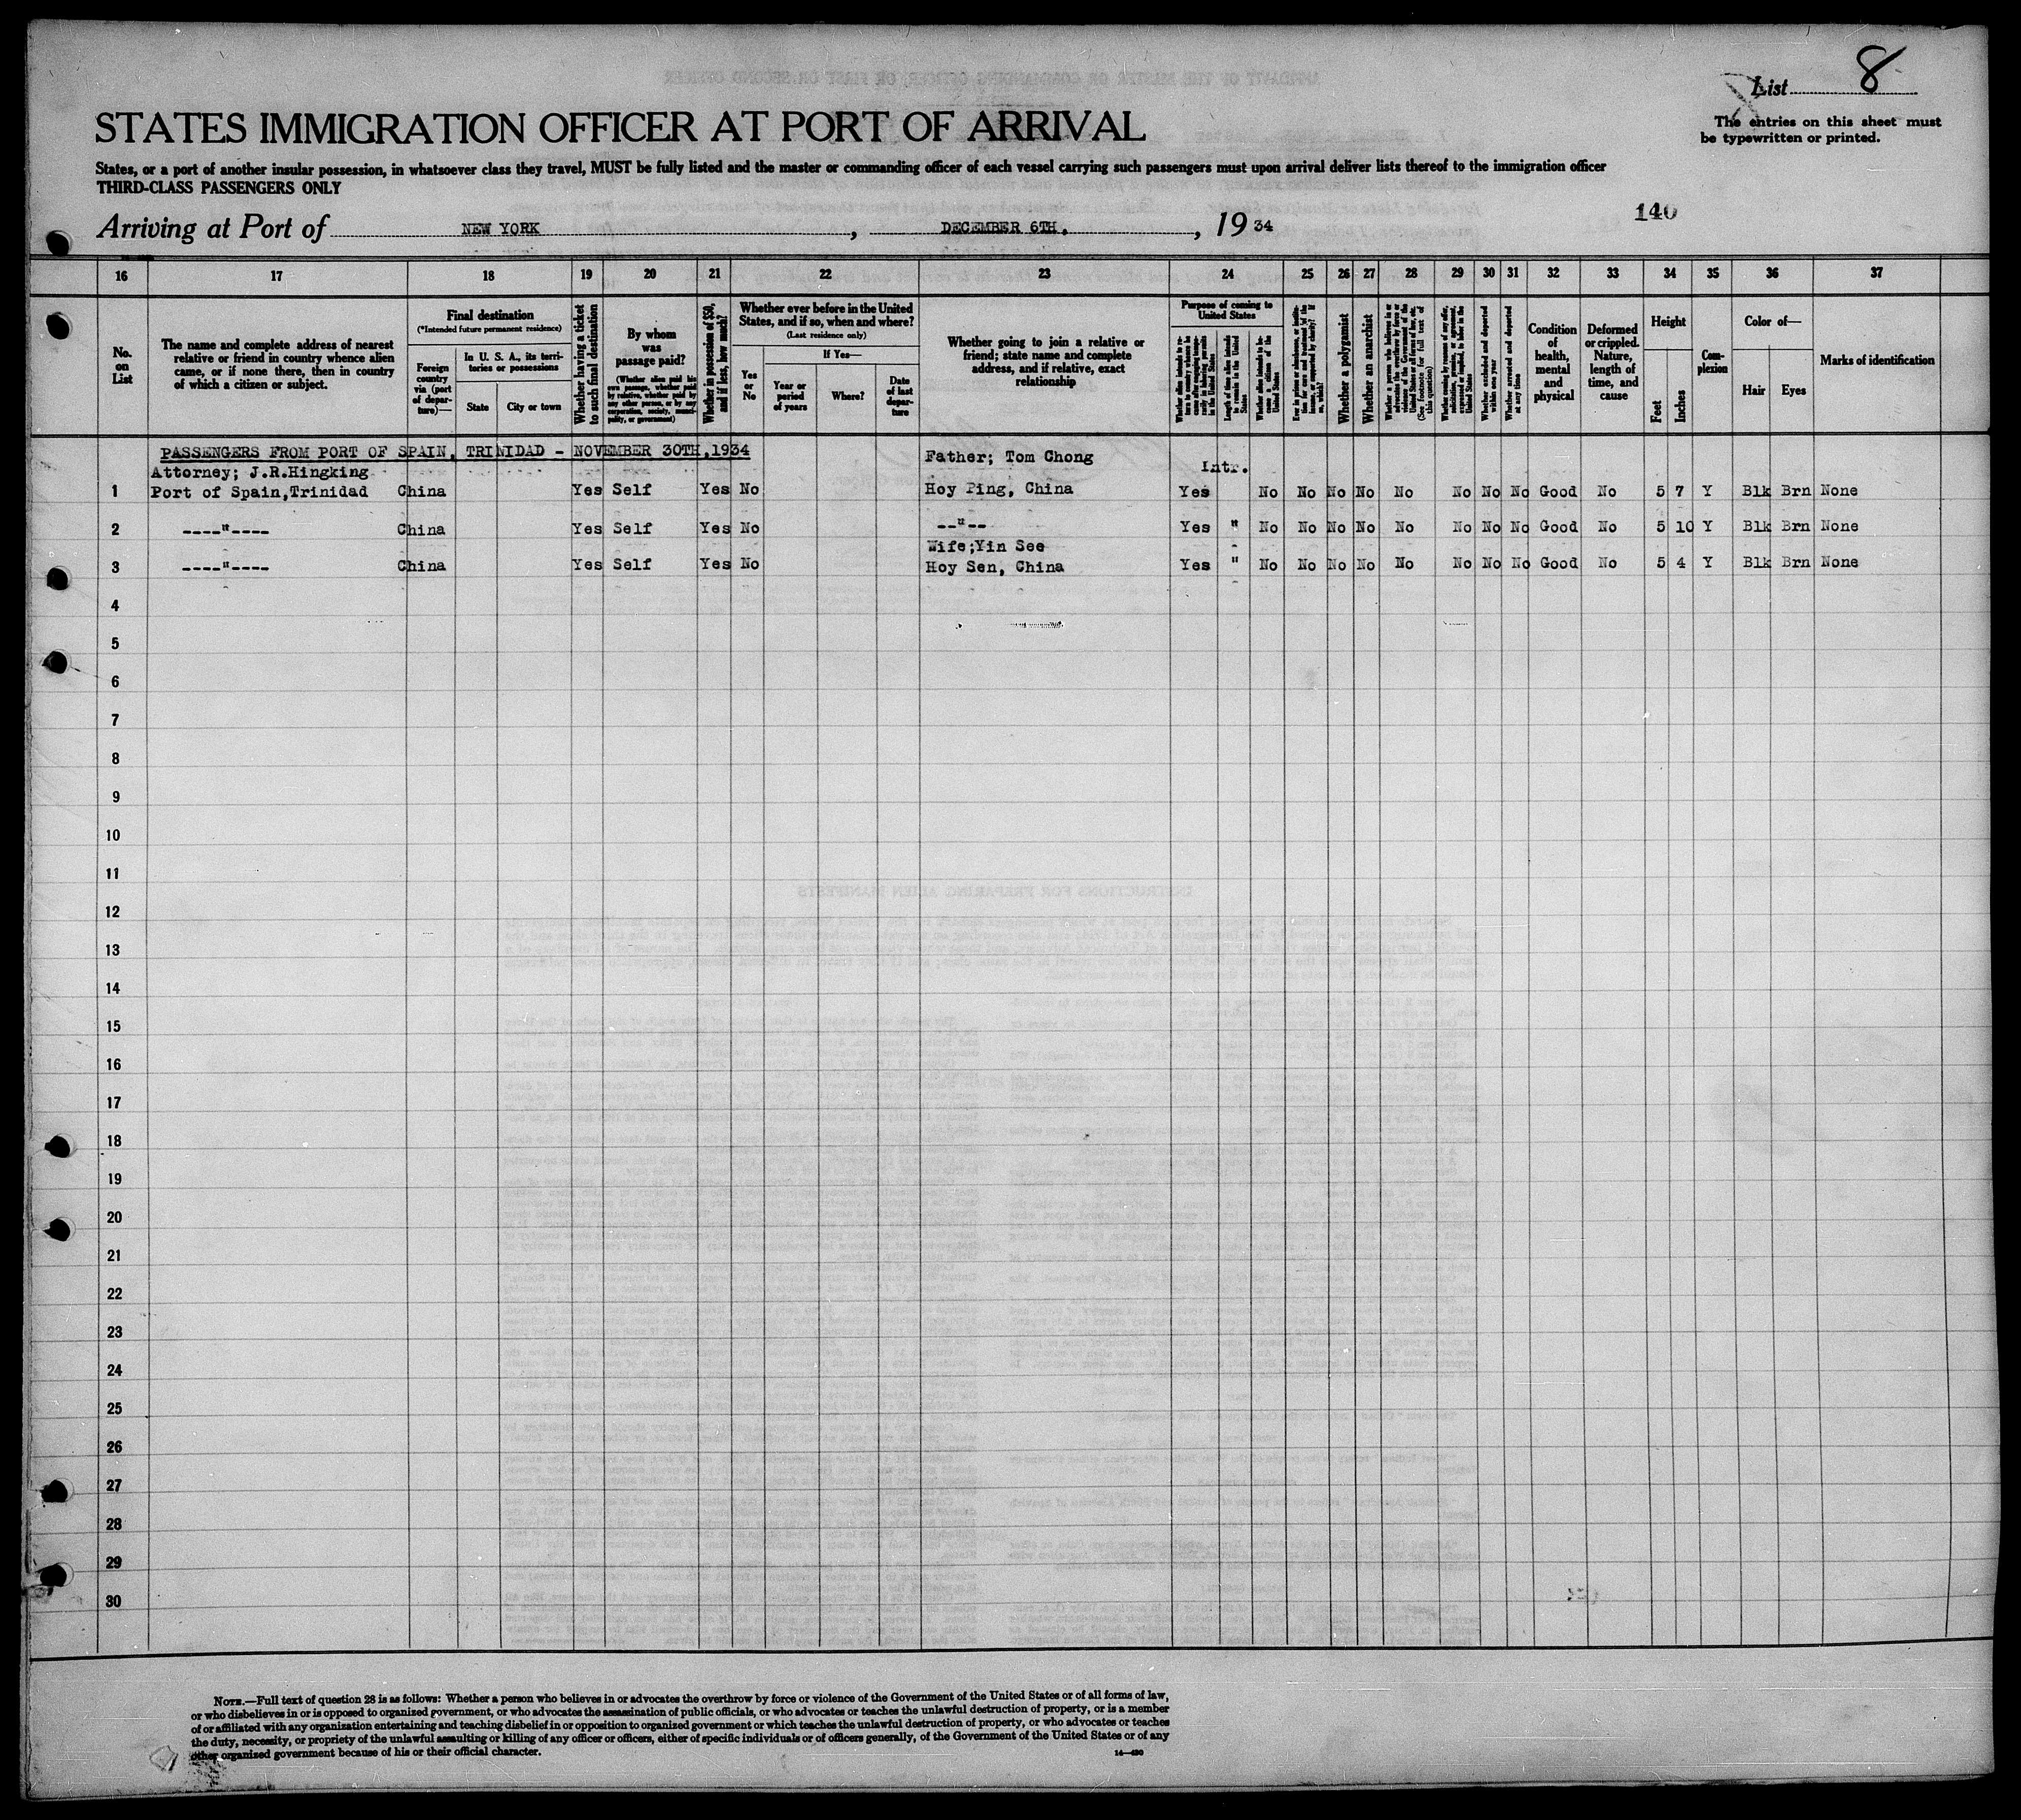 List 8
STATES IMMIGRATION OFFICER AT PORT OF ARRIVAL
The entries on this sheet must
be typewritten or printed.
States, or a port of another insular possession, in whatsoever class they travel, MUST be fully listed and the master or commanding officer of each vessel carrying such passengers must upon arrival deliver lists thereof to the immigration officer
THIRD-CLASS PASSENGERS ONLY
140
Arriving at Port of NEW YORK, DECEMBER 6TH., 1934
16 17 18 19 20 21 22 23 24 25 26 27 28 29 30 31 32 33 34 35 36 37
No. on List
The name and complete address of nearest relative or friend in country whence alien came, or if none there, then in country of which a citizen or subject.
Final destination
(*Intended future permanent residence)
Foreign country via (port of departure)—
In U. S. A., its territories or possessions
State
City or town
Whether having a ticket to such final destination
By whom was passage paid?
(Whether alien paid his own passage, whether paid by relative, whether paid by any other person, or by any corporation, society, municipality, or government)
Whether in possession of $50, and if less, how much?
Whether ever before in the United States, and if so, when and where?
(Last residence only)
Yes or No
If Yes—
Year or period of years
Where?
Date of last departure
Whether going to join a relative or friend; state name and complete address, and if relative, exact relationship
Purpose of coming to United States
Length of time alien intends to remain in the United States
Whether alien intends to become a citizen of the United States
Whether a polygamist
Whether an anarchist
(See footnote for full text of this question)
Whether excluded and deported within one year
Whether arrested and deported at any time
Condition of health, mental and physical
Deformed or crippled. Nature, length of time, and cause
Height
Feet
Inches
Complexion
Color of—
Hair
Eyes
Marks of identification
PASSENGERS FROM PORT OF SPAIN, TRINIDAD - NOVEMBER 30TH,1934
Attorney; J.R.Hingking Father; Tom Chong Intr.
1 Port of Spain,Trinidad China Yes Self Yes No Hoy Ping, China Yes No No No No No No No No Good No 5 7 Y Blk Brn None
2 ----"---- China Yes Self Yes No --"-- Yes " No No No No No No No No Good No 5 10 Y Blk Brn None
Wife;Yin See
3 ----"---- China Yes Self Yes No Hoy Sen, China Yes " No No No No No No No No Good No 5 4 Y Blk Brn None
4
5
6
7
8
9
10
11
12
13
14
15
16
17
18
19
20
21
22
23
24
25
26
27
28
29
30
NOTE.—Full text of question 28 is as follows: Whether a person who believes in or advocates the overthrow by force or violence of the Government of the United States or of all forms of law,
or who disbelieves in or is opposed to organized government, or who advocates the assassination of public officials, or who advocates or teaches the unlawful destruction of property, or is a member
of or affiliated with any organization entertaining and teaching disbelief in or opposition to organized government or which teaches the unlawful destruction of property, or who advocates or teaches
the duty, necessity, or propriety of the unlawful assaulting or killing of any officer or officers, either of specific individuals or of officers generally, of the Government of the United States or of any
other organized government because of his or their official character.
14—490